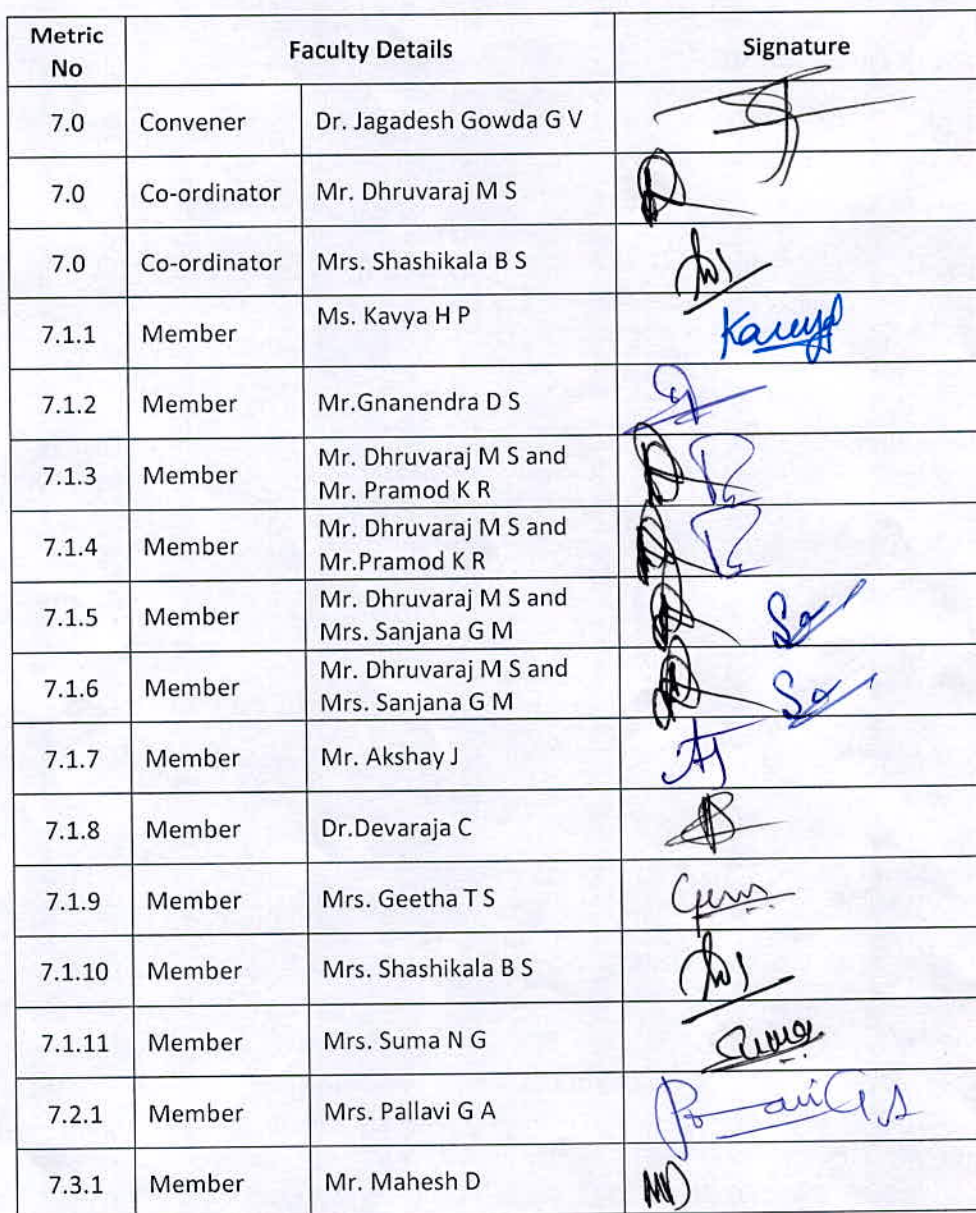 Metric No Faculty Details Signature
7.0 Convener Dr. Jagadesh Gowda G V
7.0 Co-ordinator Mr. Dhruvaraj M S
7.0 Co-ordinator Mrs. Shashikala B S
7.1.1 Member Ms. Kavya H P Kavya
7.1.2 Member Mr.Gnanendra D S
7.1.3 Member Mr. Dhruvaraj M S and
Mr. Pramod K R
7.1.4 Member Mr. Dhruvaraj M S and
Mr.Pramod K R
7.1.5 Member Mr. Dhruvaraj M S and
Mrs. Sanjana G M
7.1.6 Member Mr. Dhruvaraj M S and
Mrs. Sanjana G M
7.1.7 Member Mr. Akshay J
7.1.8 Member Dr.Devaraja C
7.1.9 Member Mrs. Geetha T S
7.1.10 Member Mrs. Shashikala B S
7.1.11 Member Mrs. Suma N G Suma
7.2.1 Member Mrs. Pallavi G A
7.3.1 Member Mr. Mahesh D